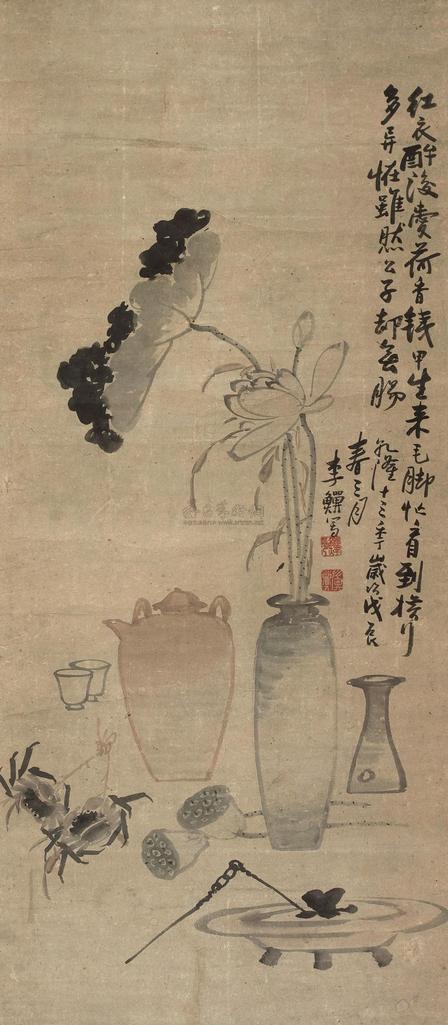 红衣醉后爱荷香铁甲生来毛脚忙看到横行
多异怪虽然公子却无肠
乾隆十三年岁次戊辰
春三月
李鱓写